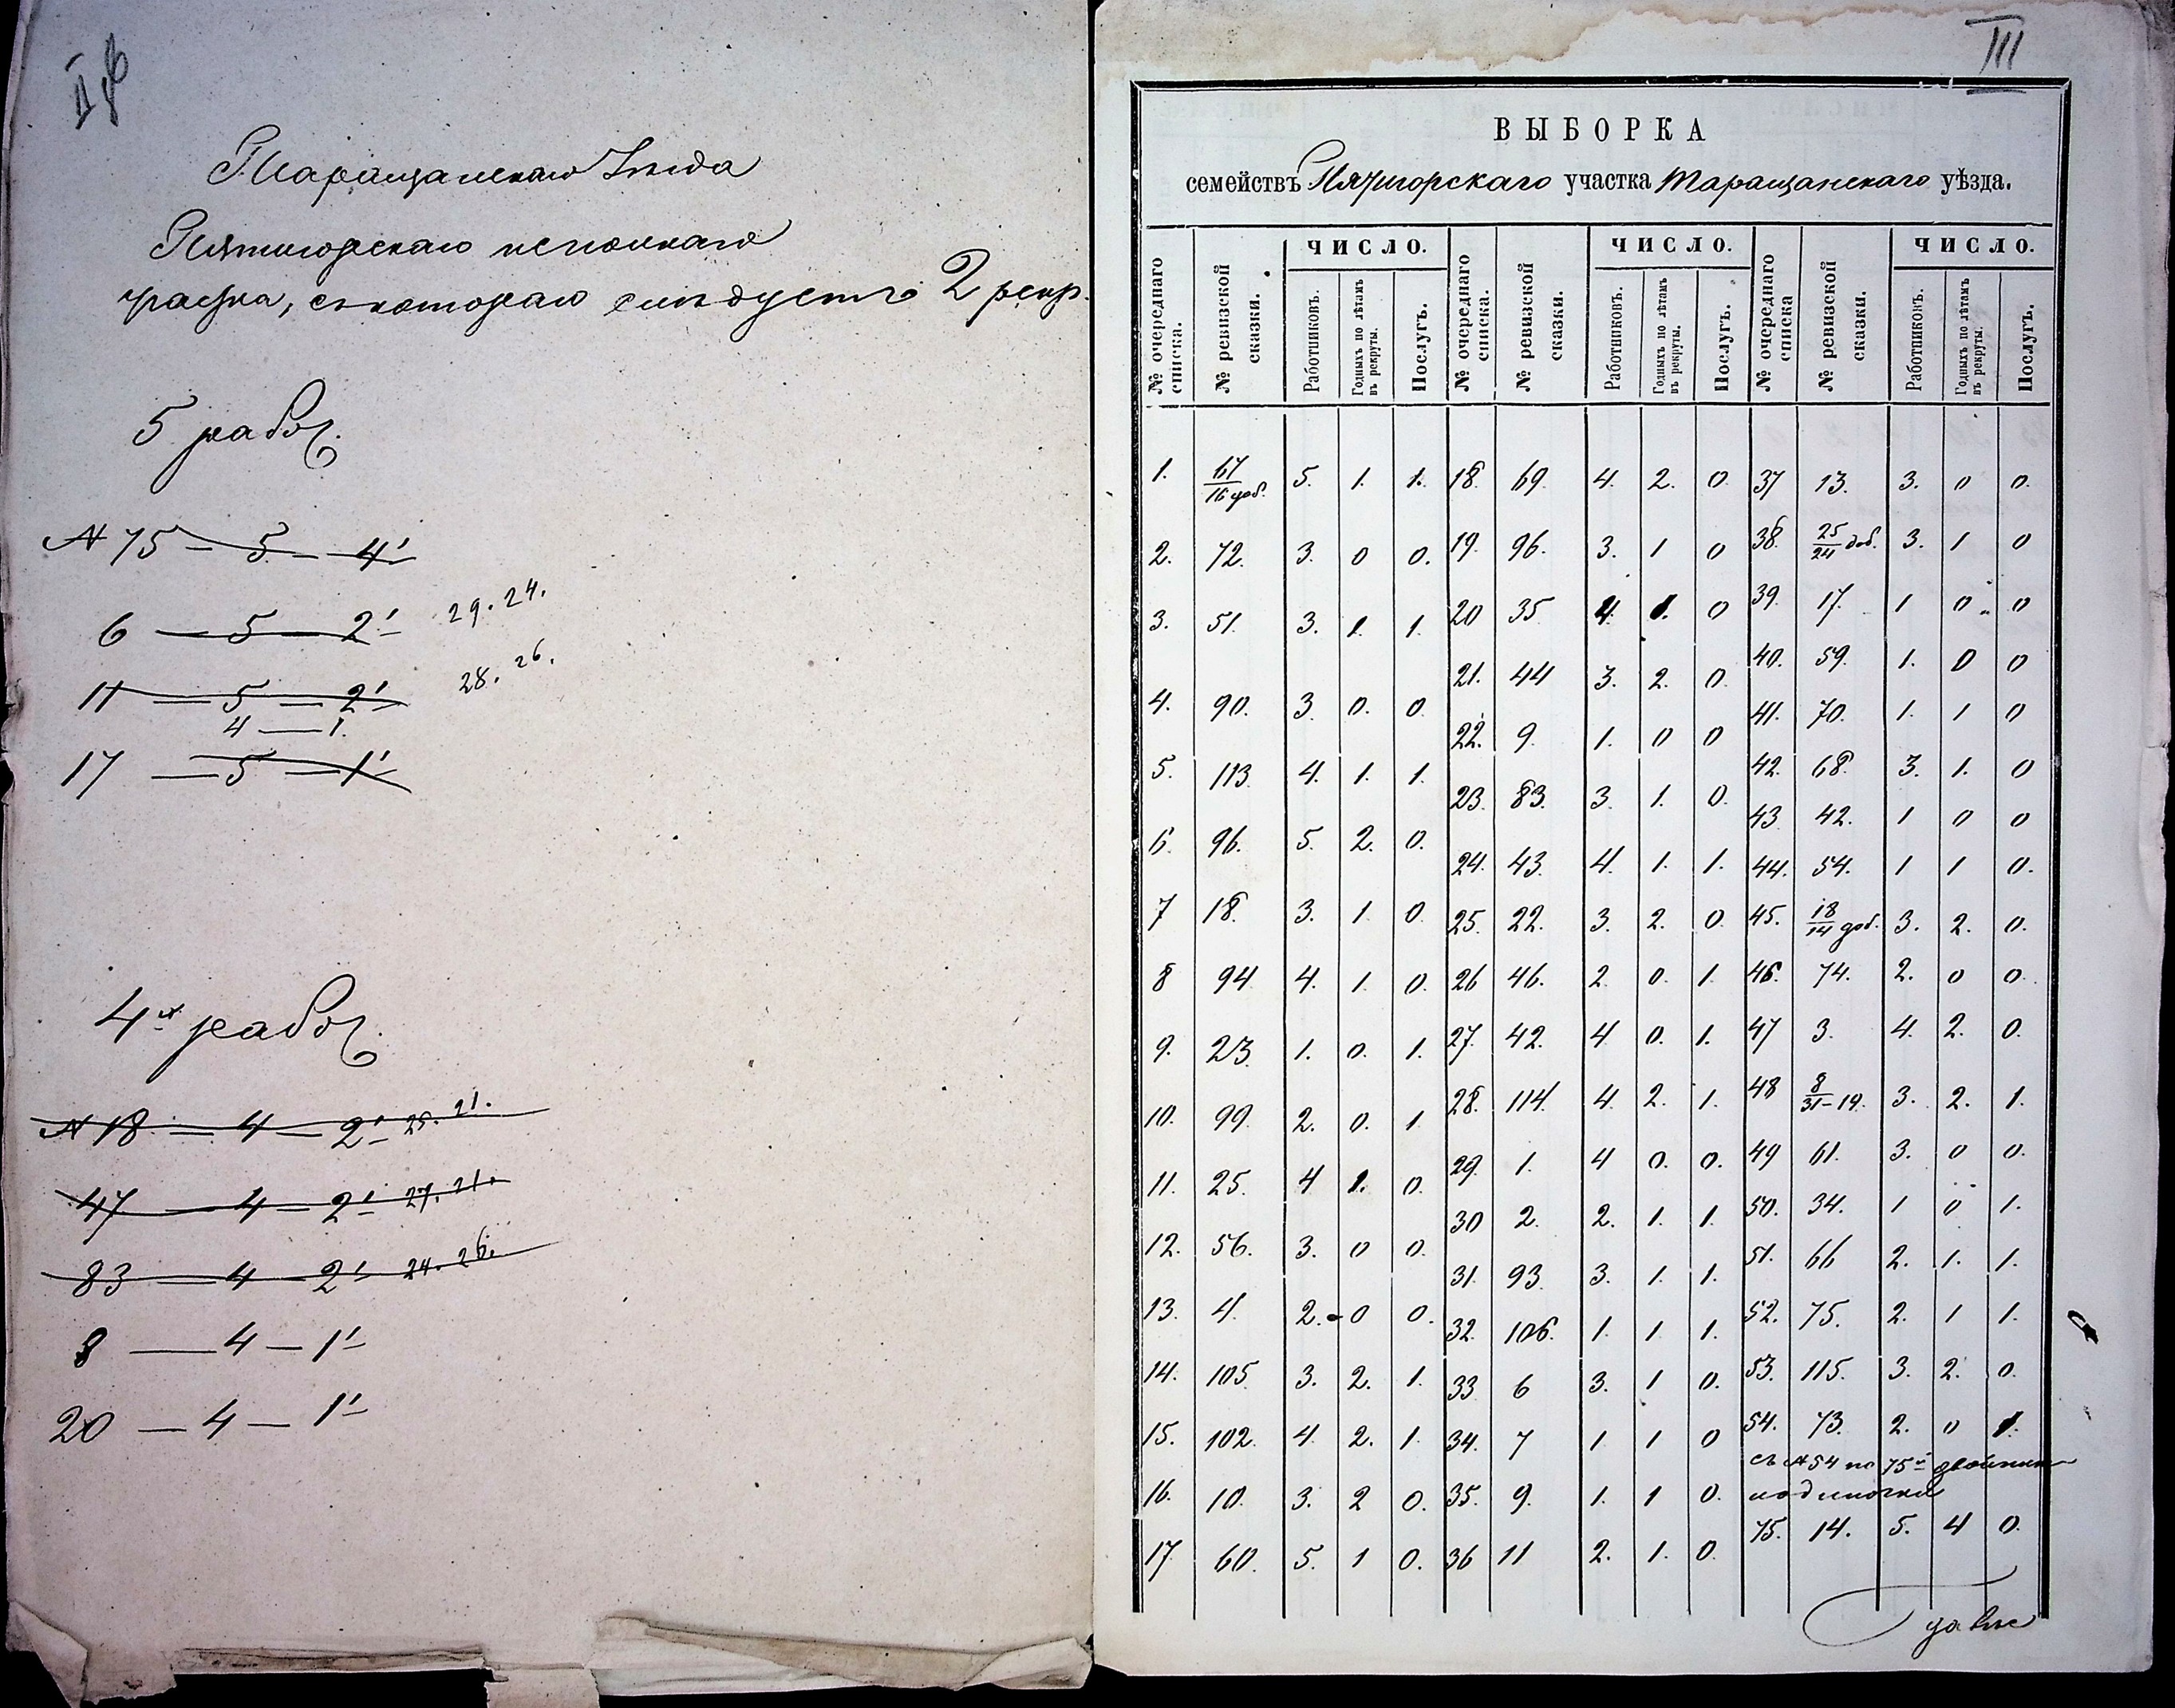 Таращанскаго Уѣзда
Пятигорскаго
участка, съ котораго слѣдуетъ 2 рекр.
5 рабоч.
№ 75 — 5 — 4
6 — 5 — 2 29. 24.
11 — 5 — 2 28. 26.
4 — 1.
17 — 5 — 1
4х рабоч.
№ 18 — 4 — 2 25. 21.
47 — 4 — 2 27. 21.
83 — 4 — 2 24. 26.
8 — 4 — 1
20 — 4 — 1
III
ВЫБОРКА
семействъ Пятигорскаго участка Таращанскаго уѣзда.
№ очереднаго списка. № ревизской сказки. ЧИСЛО. Работниковъ. Годныхъ по лѣтамъ въ рекруты. Послугъ. № очереднаго списка. № ревизской сказки. ЧИСЛО. Работниковъ. Годныхъ по лѣтамъ въ рекруты. Послугъ. № очереднаго списка № ревизской сказки. ЧИСЛО. Работниковъ. Годныхъ по лѣтамъ въ рекруты. Послугъ.
1. 67/16 доб. 5. 1. 1. 18. 69. 4. 2. 0. 37 13. 3. 0 0.
2. 72. 3. 0 0. 19. 96. 3. 1 0 38. 25/24 доб. 3. 1 0
3. 51. 3. 1. 1. 20 35 4. 1. 0 39. 17. 1 0 0
4. 90. 3. 0. 0. 21. 44 3. 2. 0. 40. 59. 1. 0 0
22. 9. 1. 0 0 41. 70. 1. 1 0
5. 113. 4. 1. 1. 23. 83. 3. 1. 0. 42. 68. 3. 1. 0
43 42. 1 0 0
6. 96. 5. 2. 0. 24. 43. 4. 1. 1. 44. 54. 1 1 0.
7 18. 3. 1. 0. 25. 22. 3. 2. 0. 45. 18/14 доб. 3. 2. 0.
8 94 4. 1. 0. 26 46. 2. 0. 1. 46. 74. 2. 0 0.
9. 23. 1. 0. 1. 27. 42. 4 0. 1. 47 3. 4. 2. 0.
10. 99. 2. 0. 1 28. 114. 4. 2. 1. 48 8/31-19. 3. 2. 1.
11. 25. 4 1. 0. 29. 1. 4 0. 0. 49 61. 3. 0 0.
12. 56. 3. 0 0. 30 2. 2. 1. 1. 50. 34. 1 0 1.
13. 4. 2. 0 0. 31. 93. 3. 1. 1. 51. 66 2. 1. 1.
32. 106. 1. 1. 1. 52. 75. 2. 1 1.
14. 105. 3. 2. 1. 33 6 3. 1 0. 53. 115. 3. 2. 0.
15. 102. 4. 2. 1. 34. 7 1. 1 0 54. 73. 2. 0 1.
съ № 54 по 75й двойники
16. 10. 3. 2 0. 35. 9. 1. 1 0.
17 60. 5. 1 0. 36 11 2. 1. 0. 75. 14. 5. 4 0.